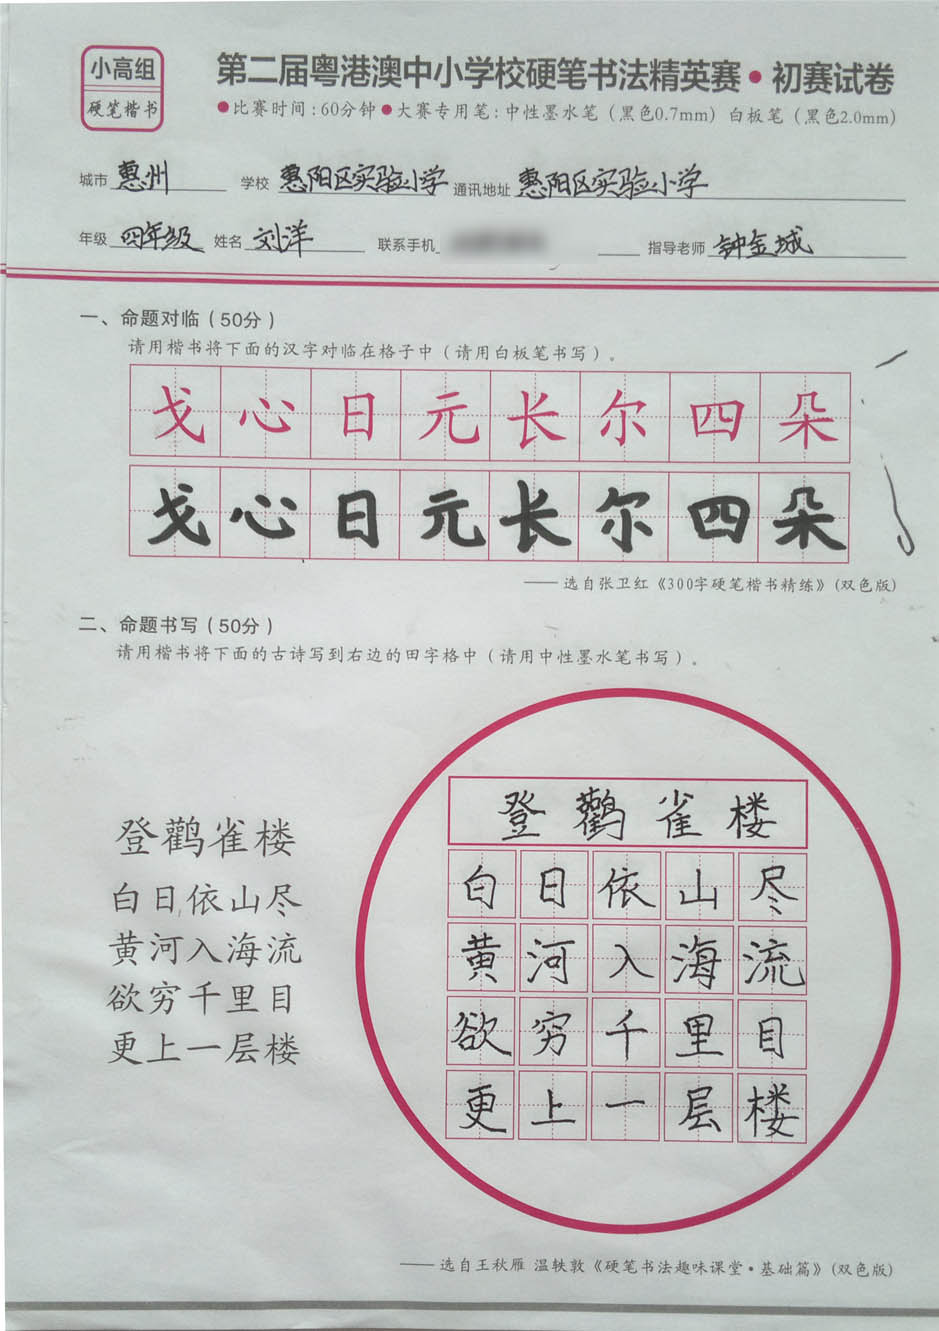 小高组
硬笔楷书
第二届粤港澳中小学校硬笔书法精英赛·初赛试卷
●比赛时间:60分钟●大赛专用笔:中性墨水笔(黑色0.7mm) 白板笔(黑色2.0mm)
城市 惠州 学校 惠阳区实验小学 通讯地址 惠阳区实验小学
年级 四年级 姓名 刘洋 联系手机 指导老师 钟金城
一、命题对临(50分)
请用楷书将下面的汉字对临在格子中(请用白板笔书写)。
戈心日元长尔四朵
戈心日元长尔四朵
——选自张卫红《300字硬笔楷书精练》(双色版)
二、命题书写(50分)
请用楷书将下面的古诗写到右边的田字格中(请用中性墨水笔书写)。
登鹳雀楼
白日依山尽
黄河入海流
欲穷千里目
更上一层楼
登鹳雀楼
白日依山尽
黄河入海流
欲穷千里目
更上一层楼
——选自王秋雁 温轶敦《硬笔书法趣味课堂·基础篇》(双色版)